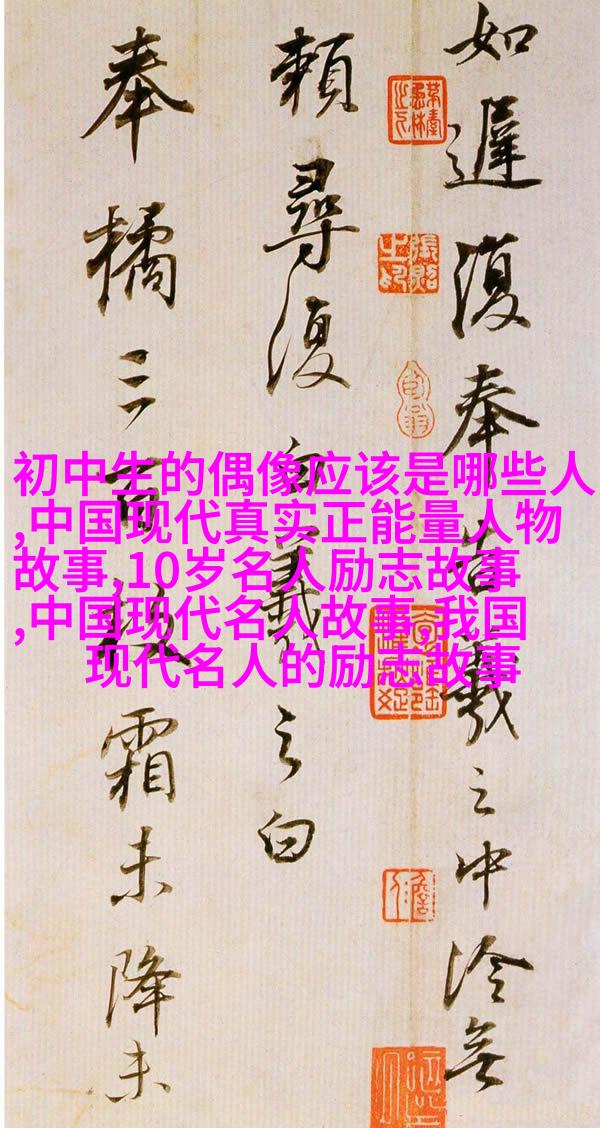 初中生的偶像应该是哪些人
,中国现代真实正能量人物
故事,10岁名人励志故事
,中国现代名人故事,我国
现代名人的励志故事
如遲復奉告羲之中冷無
賴尋復白羲之白
奉橘三百枚霜未降未